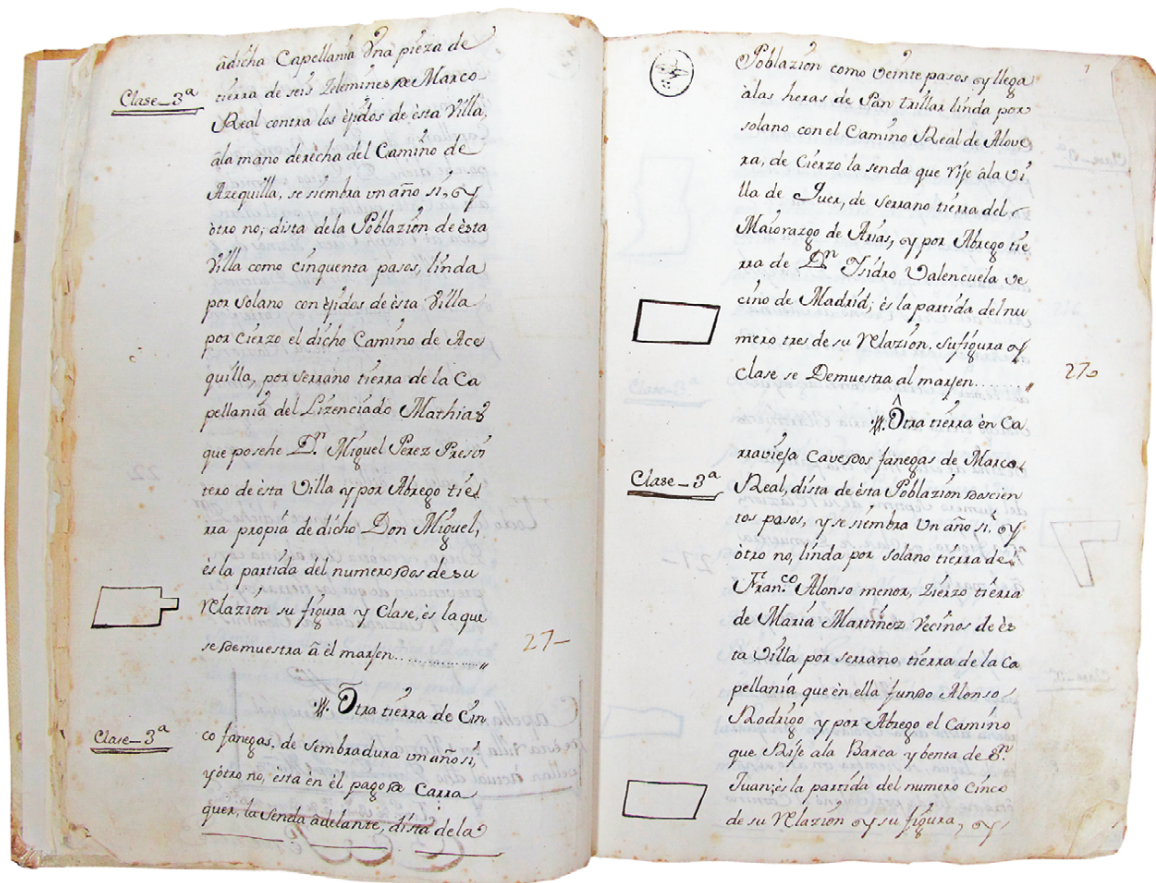 âdicha Capellania Una pieza de
Clase_3ª
tierra de seis Zelemines de Marco
Real contra los éjidos de ésta Villa,
âla mano derecha del Camino de
Azequilla, se siembra vn año si, y
ôtro no; dista dela Poblazion de ésta
Villa como cinquenta pasos, linda
por solano con éjidos de ésta Villa
por Cierzo el dicho Camino de Ace
quilla, por serrano tierra de la Ca
pellania del Lizenciado Mathias
que posehe Dn. Miguel Perez Presvi
tero de ésta Villa y por Abrego tie
rra propia de dicho Don Miguel,
és la partida del numero dos de su
Relazion su figura y Clase, és la que
se Demuestra â él marjen..............„ 27-
Otra tierra de Cin
Clase_3ª
co fanegas, de sembradura vn año si,
y ôtro no, ésta én él pago de Carra
quer, la senda âdelante, dista dela
Poblazion como veinte pasos y llega
âlas heras de Pan trillar linda por
solano con el Camino Real de Alove
ra, de Cierzo la senda que Rije âla Vi
lla de Quer, de serrano tierra del
Maiorazgo de Arias, y por Abrego tie
rra de Dn Ysidro Valenzuela ve
cino de Madrid; és la partida del nu
mero tres de su Relazion. su figura y
clase se Demuestra al marjen......„ 27o
Otra tierra én Ca
rravieja Cave dos fanegas de Marco
Clase_3ª
Real, dista de ésta Poblazion doscien
tos pasos, y se siembra Un año si, y
ôtro no, linda por solano tierra de
Franco. Alonso menor, Zierzo tierra
de Maria Martinez Vecinos de és
ta Villa por serrano tierra de la Ca
pellania que én ella fundo Alonso
Rodrigo y por Abrego el Camino
que Rije ala Barca y benta de Sn
Juan; és la partida del numero Cinco
de su Relazion y su figura, y